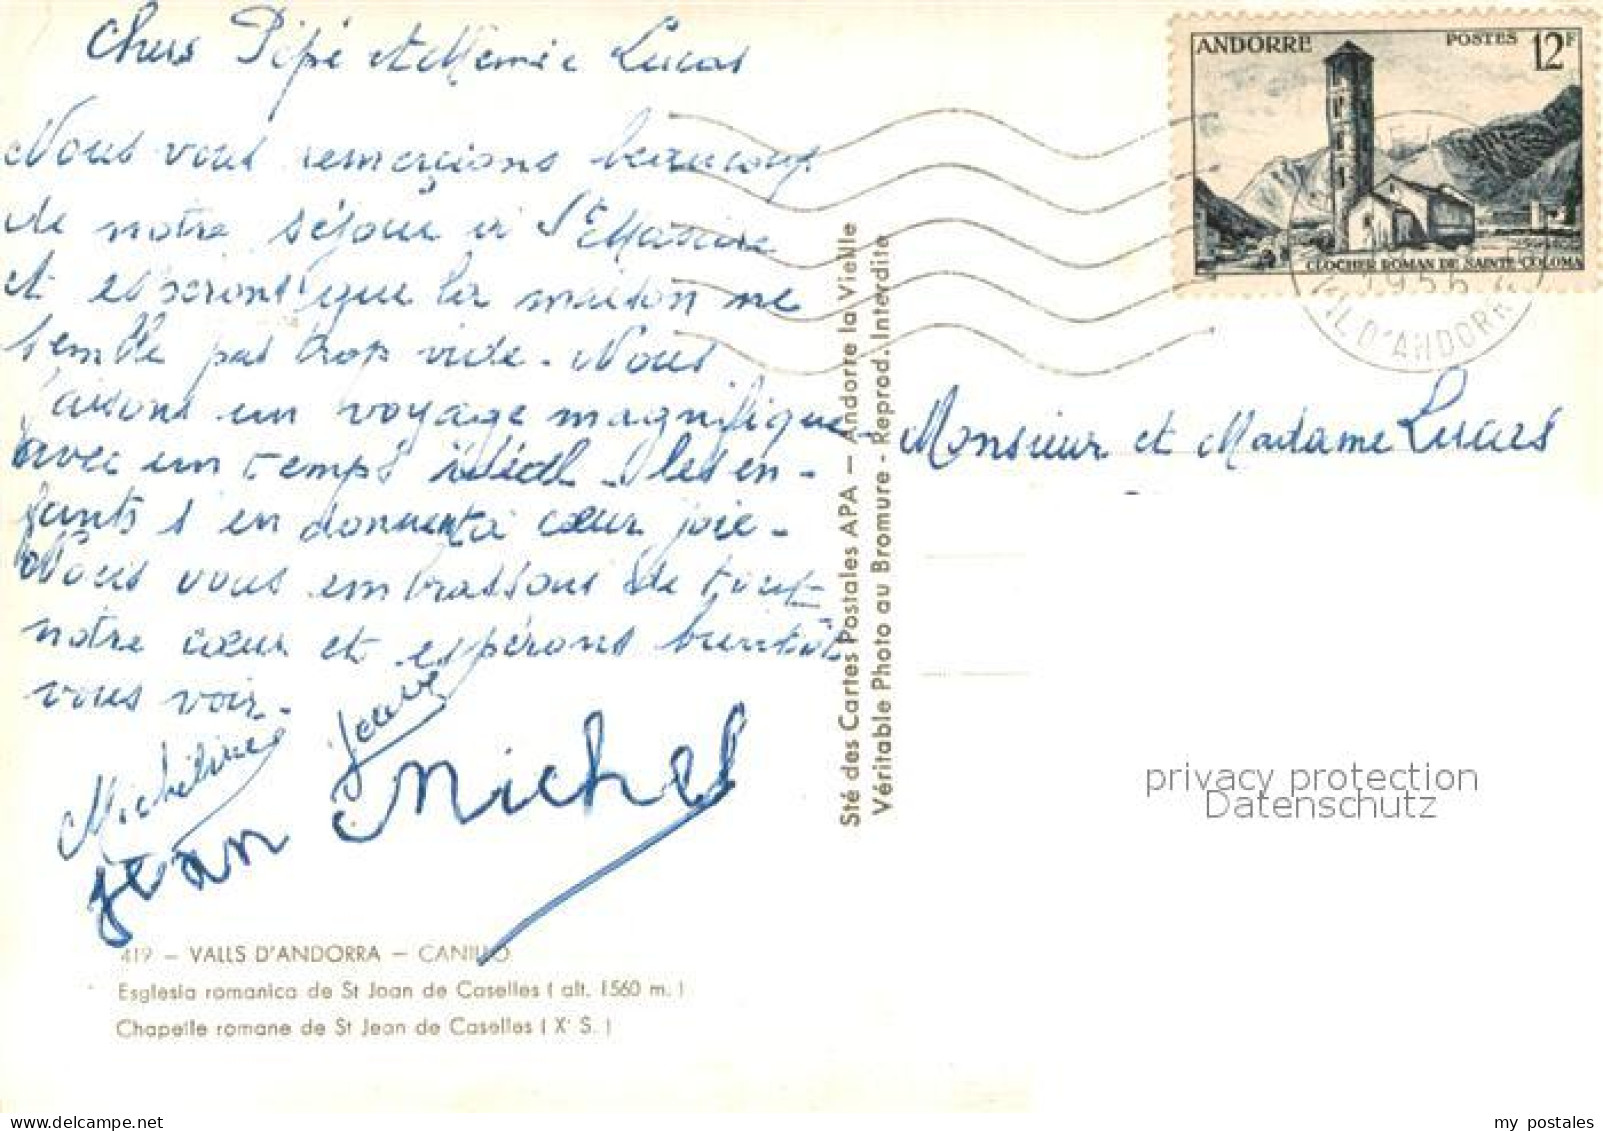 Chers Pépé et Mémée Lucas
Nous vous remerçions beaucoup
de notre séjour à St Macaire
et espérons que la maison ne
semble pas trop vide. Nous
faisons un voyage magnifique
avec un temps idéal. les en-
fants s'en donnent à cœur joie.
Nous vous embrassons de tout
notre cœur et espérons bientôt
vous voir.
Micheline
Jean Michel
419 — VALLS D'ANDORRA — CANILLO
Esglesia romanica de St Joan de Caselles ( alt. 1560 m. )
Chapelle romane de St Jean de Caselles ( Xe S. )
Sté des Cartes Postales APA — Andorre la Vieille
Véritable Photo au Bromure - Reprod. Interdite
ANDORRE POSTES 12F
CLOCHER ROMAN DE SAINTE-COLOMA
1956
D'ANDORRE
Monsieur et Madame Lucas
privacy protection
Datenschutz
my postales